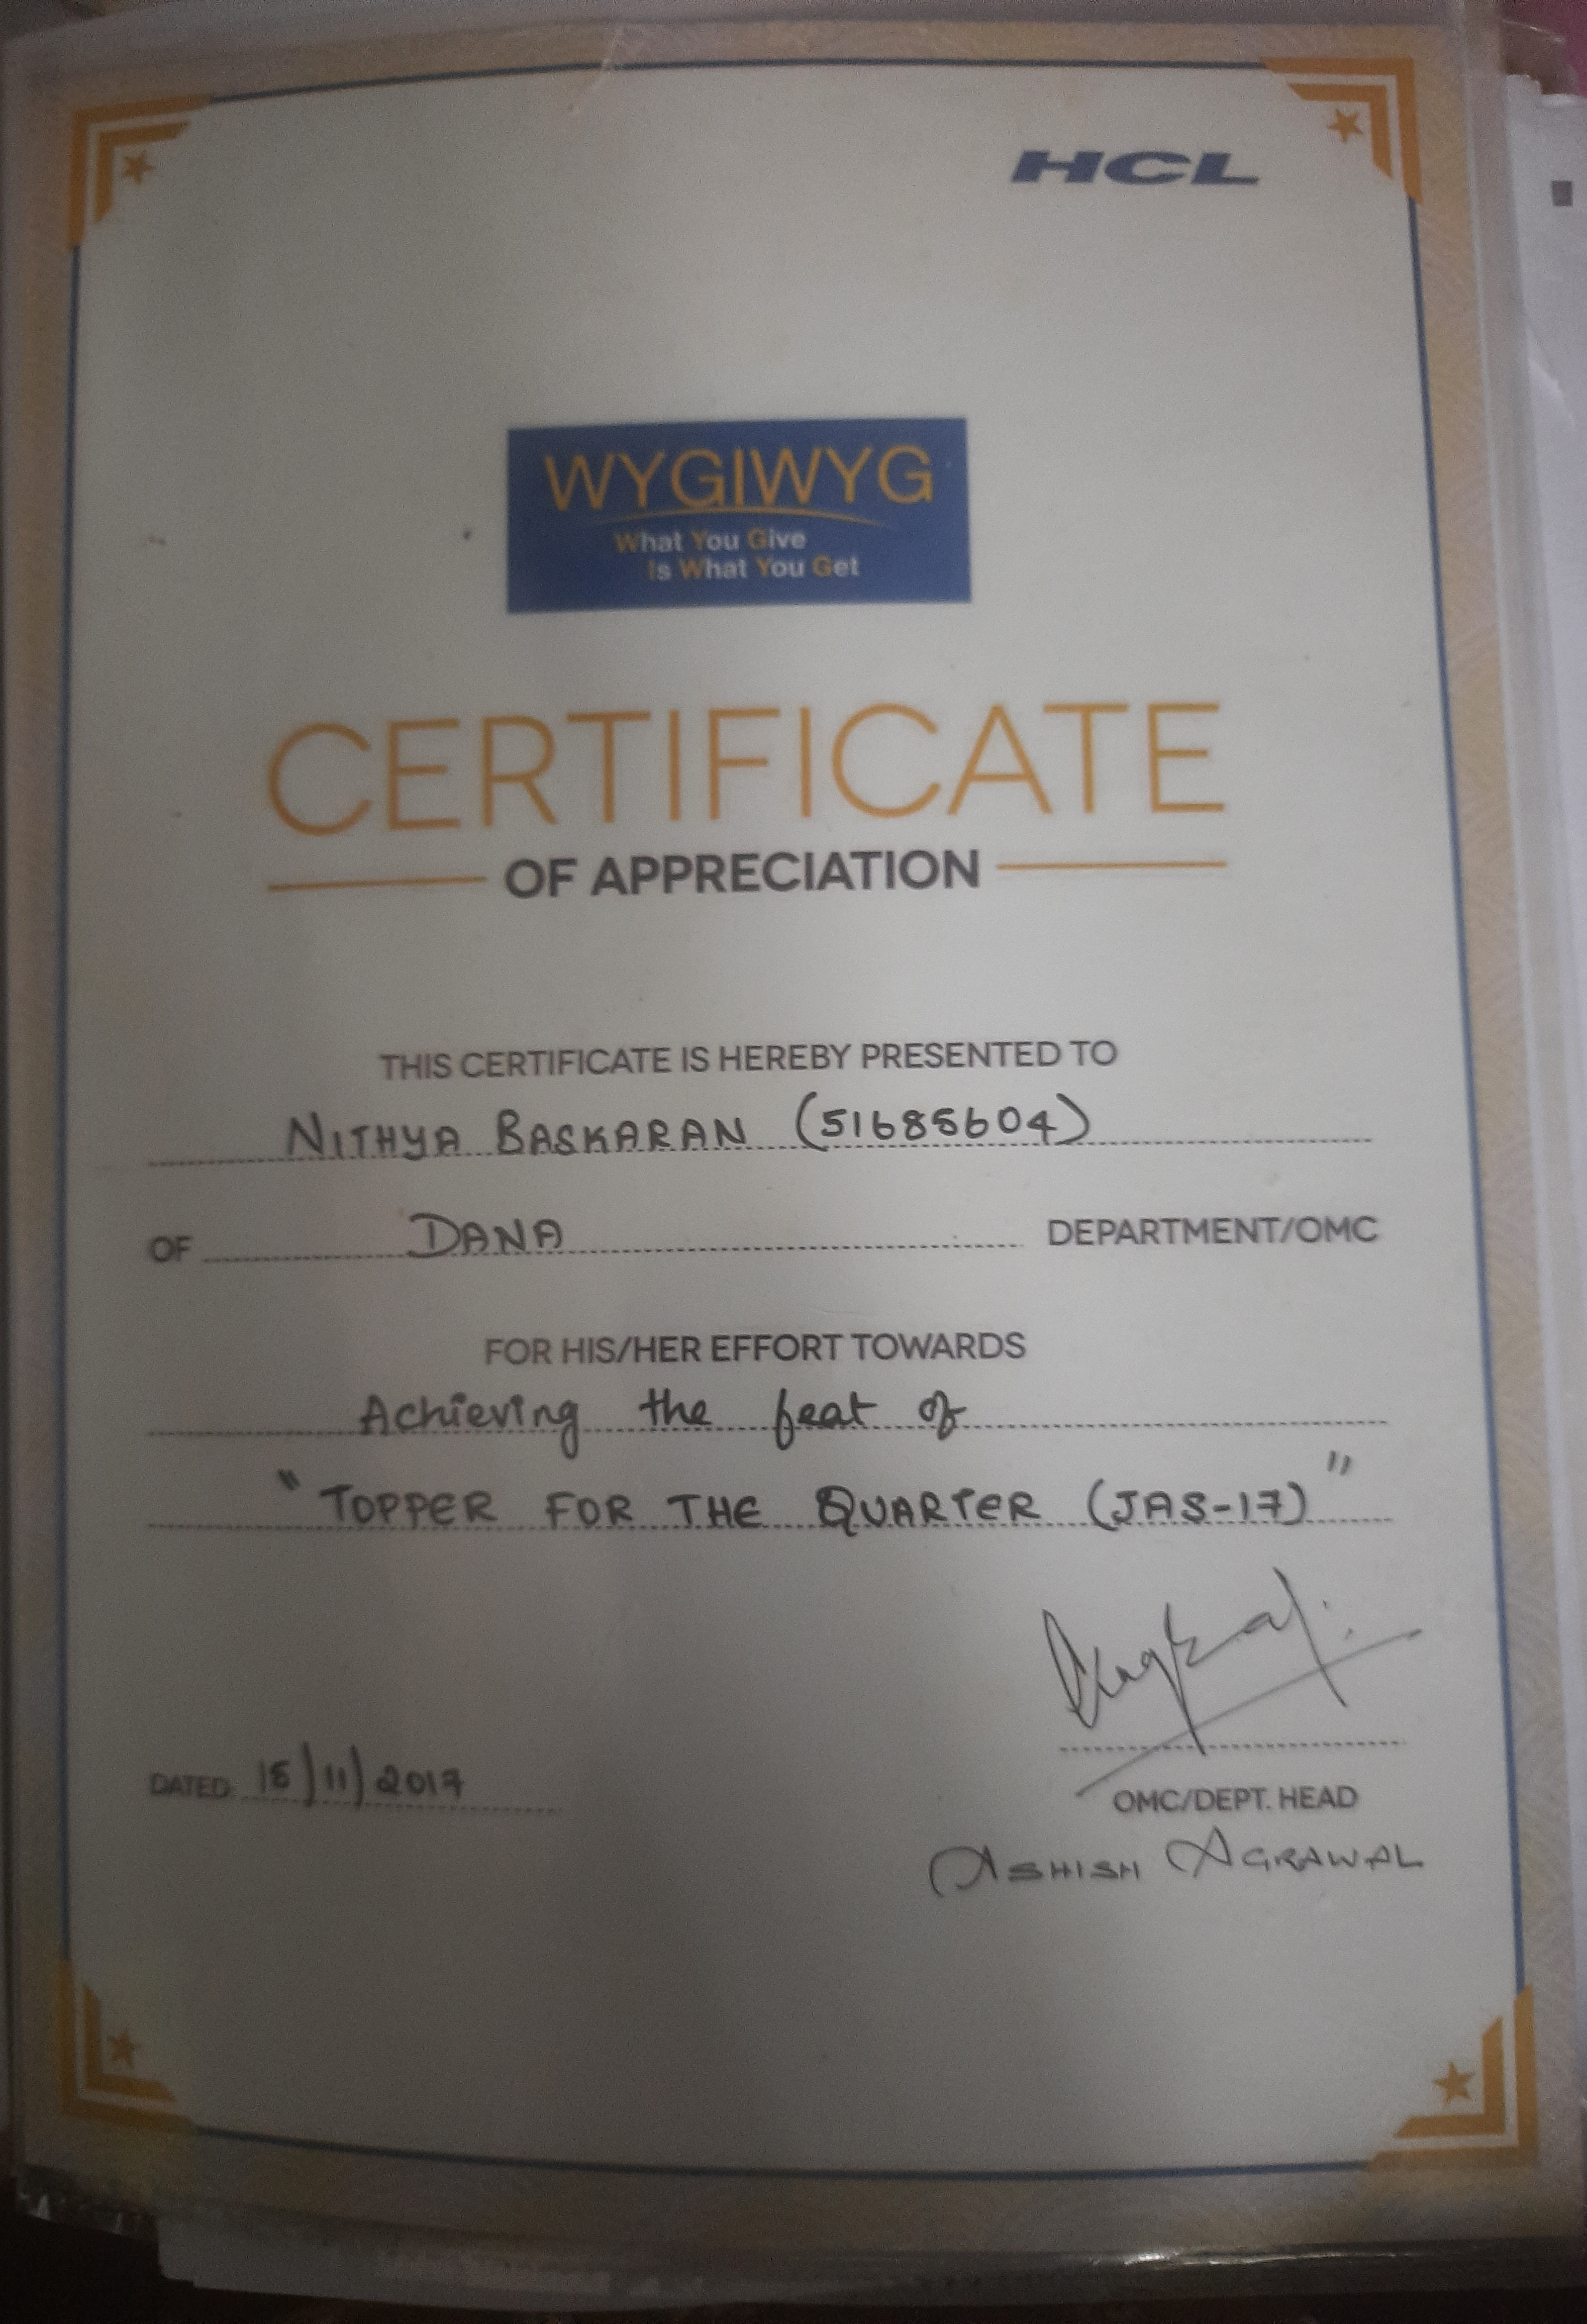 HCL
WYGIWYG
What You Give
Is What You Get
CERTIFICATE
OF APPRECIATION
THIS CERTIFICATE IS HEREBY PRESENTED TO
NITHYA BASKARAN (51685604)
OF DANA DEPARTMENT/OMC
FOR HIS/HER EFFORT TOWARDS
Achieving the feat of
"TOPPER FOR THE QUARTER (JAS-17)"
DATED: 15/11/2017
OMC/DEPT. HEAD
ASHISH AGRAWAL